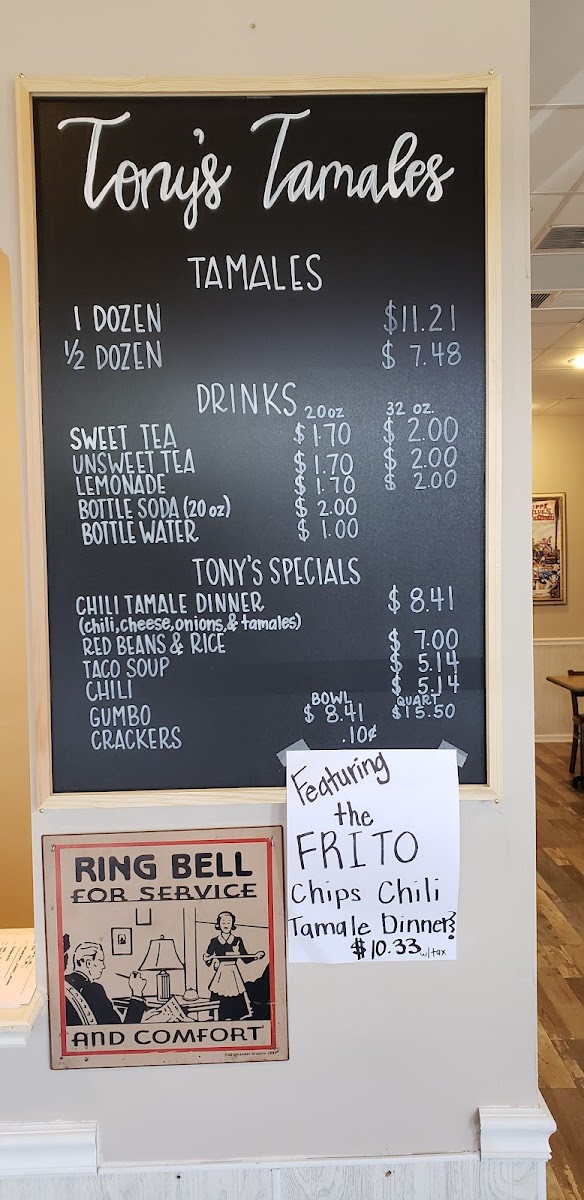 Tony's Tamales
TAMALES
1 DOZEN $11.21
1/2 DOZEN $ 7.48
DRINKS 20oz 32 oz.
SWEET TEA $1.70 $ 2.00
UNSWEET TEA $1.70 $ 2.00
LEMONADE $1.70 $ 2.00
BOTTLE SODA (20 oz) $ 2.00
BOTTLE WATER $ 1.00
TONY'S SPECIALS
CHILI TAMALE DINNER $ 8.41
(chili, cheese, onions, & tamales)
RED BEANS & RICE $ 7.00
TACO SOUP $ 5.14
CHILI $ 5.14
BOWL QUART
GUMBO $ 8.41 $15.50
CRACKERS .10¢
Featuring
the
FRITO
Chips Chili
Tamale Dinner
$10.33 w/tax
RING BELL
FOR SERVICE
AND COMFORT